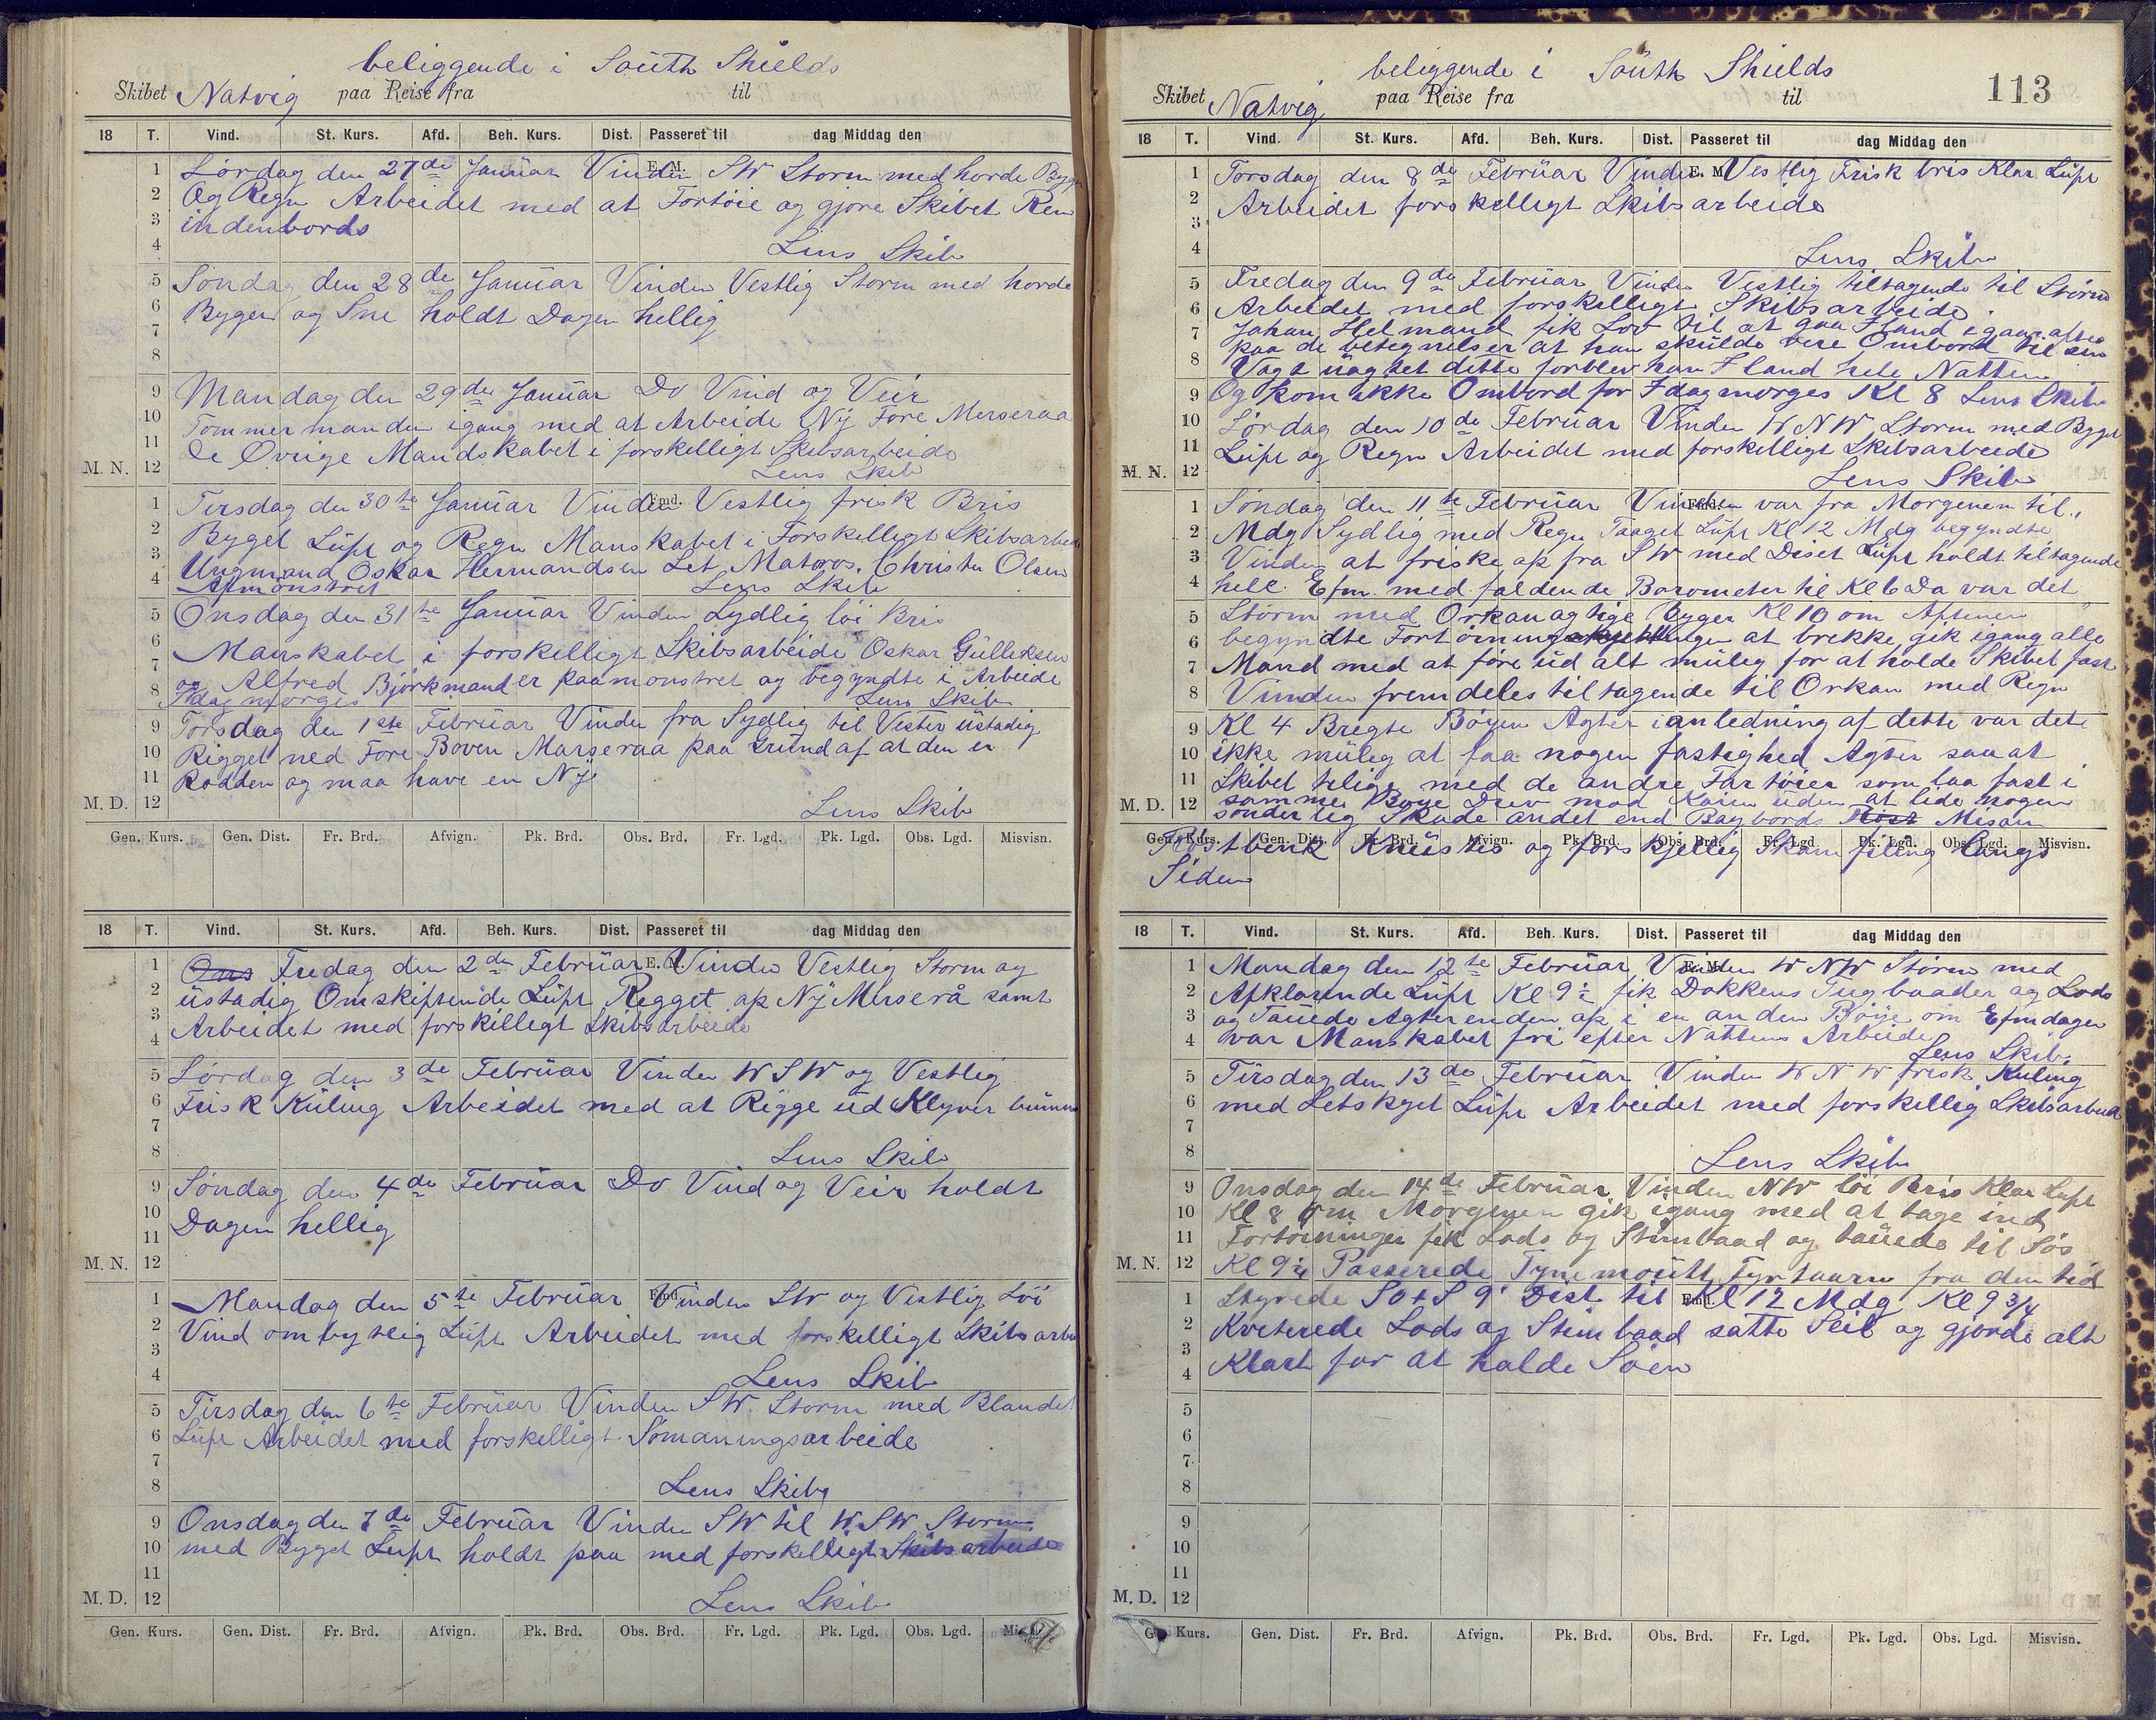 beliggende i South Shields
Skibet Natvig paa Reise fra til
18 T. Vind. St. Kurs. Afd. Beh. Kurs. Dist. Passeret til dag Middag den
1 Lørdag den 27de Januar Vinden SW Storm med horde Byger
2 Og Regn Arbeidet med at Fortöie og gjøre Skibet Ren
3 indenbords
4 Lens Skib
5 Søndag den 28de Januar Vinden Vestlig Storm med horde
6 Byger og Sne holdt Dagen hellig
7
8
9 Mandag den 29de Januar Do Vind og Veir
10 Tømmermanden igang med at Arbeide Ny Fore Merseraa
11 De Øvrige Mandskabet i forskelligt Skibsarbeide
M. N. 12 Lens Skib
1 Tirsdag den 30te Januar Vinden Vestlig frisk Bris
2 Byget Lüft og Regn Manskabet i Forskelligt Skibsarbeide
3 Ungmand Oskar Hermandsen Let Matros. Christen Olsen
4 Afmønstret Lens Skib
5 Onsdag den 31te Januar Vinden Sydlig löi Bris
6 Manskabet i forskelligt Skibsarbeide Oskar Gülleksen
7 og Alfred Bjørkmand er paamønstret og begyndte i Arbeide
8 Idag morges Lens Skib
9 Torsdag den 1ste Februar Vinden fra Sydlig til Vester üstadig
10 Rigget ned Fore Boven Marseraa paa Gründ af at den er
11 Rødden og maa have en Nÿ
M. D. 12 Lens Skib
Gen. Kurs. Gen. Dist. Fr. Brd. Afvign. Pk. Brd. Obs. Brd. Fr. Lgd. Pk. Lgd. Obs. Lgd. Misvisn.
18 T. Vind. St. Kurs. Afd. Beh. Kurs. Dist. Passeret til dag Middag den
1 Ons Fredag den 2den Februar E. M. Vinden Vestlig Storm og
2 üstadig Omskiftende Lüft Rigget op Ny Merserå samt
3 Arbeidet med forskilligt Skibsarbeide
4
5 Lørdag den 3de Februar Vinden W S W og Vestlig
6 Frisk Küling Arbeidet med at Rigge üd Klyver bümmen
7
8 Lens Skib
9 Søndag den 4de Februar Do Vind og Veir holdt
10 Dagen hellig
11
M. N. 12
1 Mandag den 5te Februar Vinden SW og Vestlig Löi
2 Vind ombytlig Lüft Arbeidet med forskelligt Skibsarbe
3
4 Lens Skib
5 Tirsdag den 6te Februar Vinden SW. Storm med Blandet
6 Lüft Arbeidet med forskelligt Sömaningsarbeide
7
8 Lens Skib
9 Onsdag den 7de Februar Vinden SW til W.SW Storm
10 med Byget Lüft holdt paa med forskelligt Skibsarbeide
11
M. D. 12 Lens Skib
Gen. Kurs. Gen. Dist. Fr. Brd. Afvign. Pk. Brd. Obs. Brd. Fr. Lgd. Pk. Lgd. Obs. Lgd.
beliggende i South Shields
Skibet Natvig paa Reise fra til 113
18 T. Vind. St. Kurs. Afd. Beh. Kurs. Dist. Passeret til dag Middag den
1 Torsdag den 8de Februar Vinden Vestlig Frisk bris Klar Lüft
2 Arbeidet forskelligt Skibsarbeide
3
4 Lens Skib
5 Fredag den 9de Februar Vinden Vestlig tiltagende til Storm
6 Arbeidet med forskelligt Skibsarbeide.
7 Johan Helmand fik Lov til at gaa Iland igaaraftes
8 paa de betegnelser at han skülde vere Ombord til sin
Vagt üagtet dette forblev han Iland hele Natten
9 Og kom ikke Ombord før Idagmorges Kl 8 Lens Skib
10 Lørdag den 10de Februar Vinden W N W Storm med Byget
11 Lüft og Regn Arbeidet med forskelligt Skibsarbeide
M. N. 12 Lens Skib
1 Søndag den 11te Februar Vinden var fra Morgenen til
2 Mdg Sydlig med Regn Taaget Lüft Kl 12 Mdg begyndte
3 Vinden at friske op fra SW med Diset Lüft holdt tiltagende
4 hele Efm. med faldende Barometer til Kl 6 Da var det
5 Storm med Orkanagtige Byger Kl 10 om Aftenen
6 begyndte at brekke, gik igang alle
7 Mand med at føre üd alt mülig for at holde Skibet fast
8 Vinden fremdeles tiltagende til Orkan med Regn
9 Kl 4 Bregte Böyen Agter i anledning af dette var det
10 ikke mülig at faa nogen fastighed Agter saa at
11 Skibet tilige med de andre Fartøier som laa fast i
M. D. 12 samme Böye Drev mod Kaien üden at lide nogen
sønderlig Skade andet end Bagbords Röst Mesan
Gen. Kurs. Gen. Dist. Fr. Brd. Afvign. Pk. Brd. Obs. Brd. Fr. Lgd. Pk. Lgd. Obs. Lgd. Misvisn.
Røstbenk Knüstes og forskjellig Skamfiling langs
Siden
18 T. Vind. St. Kurs. Afd. Beh. Kurs. Dist. Passeret til dag Middag den
1 Mandag den 12te Februar Vinden W NW Storm med
2 Afklarende Lüft Kl 9½ fik Dokkens Tugbaader og Lods
3 og Tauede Agterenden op i en anden Böye om Efmdagen
4 var Manskabet fri efter Nattens Arbeide
Lens Skib.
5 Tirsdag den 13de Februar Vinden W N W frisk Küling
6 med Letskyet Lüft Arbeidet med forskellig Skibsarbeid
7
8 Lens Skib
9 Onsdag den 14de Februar Vinden NW löi Bris Klar Lüft
10 Kl 8 om Morgenen gik igang med at tage ind
11 Fortöininger fik Lods og Stimbaad og tauede til Søs
M. N. 12 Kl 9¼ Passerede Tynemouth Fyrtaarn fra den tid
1 Styrede SOtS 9' Dist. til Kl 12 Mdg Kl 9 3/4
2 Kviterede Lods og Stimbaad satte Seil og gjorde alt
3 Klart for at holde Søen
4
5
6
7
8
9
10
11
M. D. 12
Kurs. Gen. Dist. Fr. Brd. Afvign. Pk. Brd. Obs. Brd. Fr. Lgd. Pk. Lgd. Obs. Lgd. Misvisn.